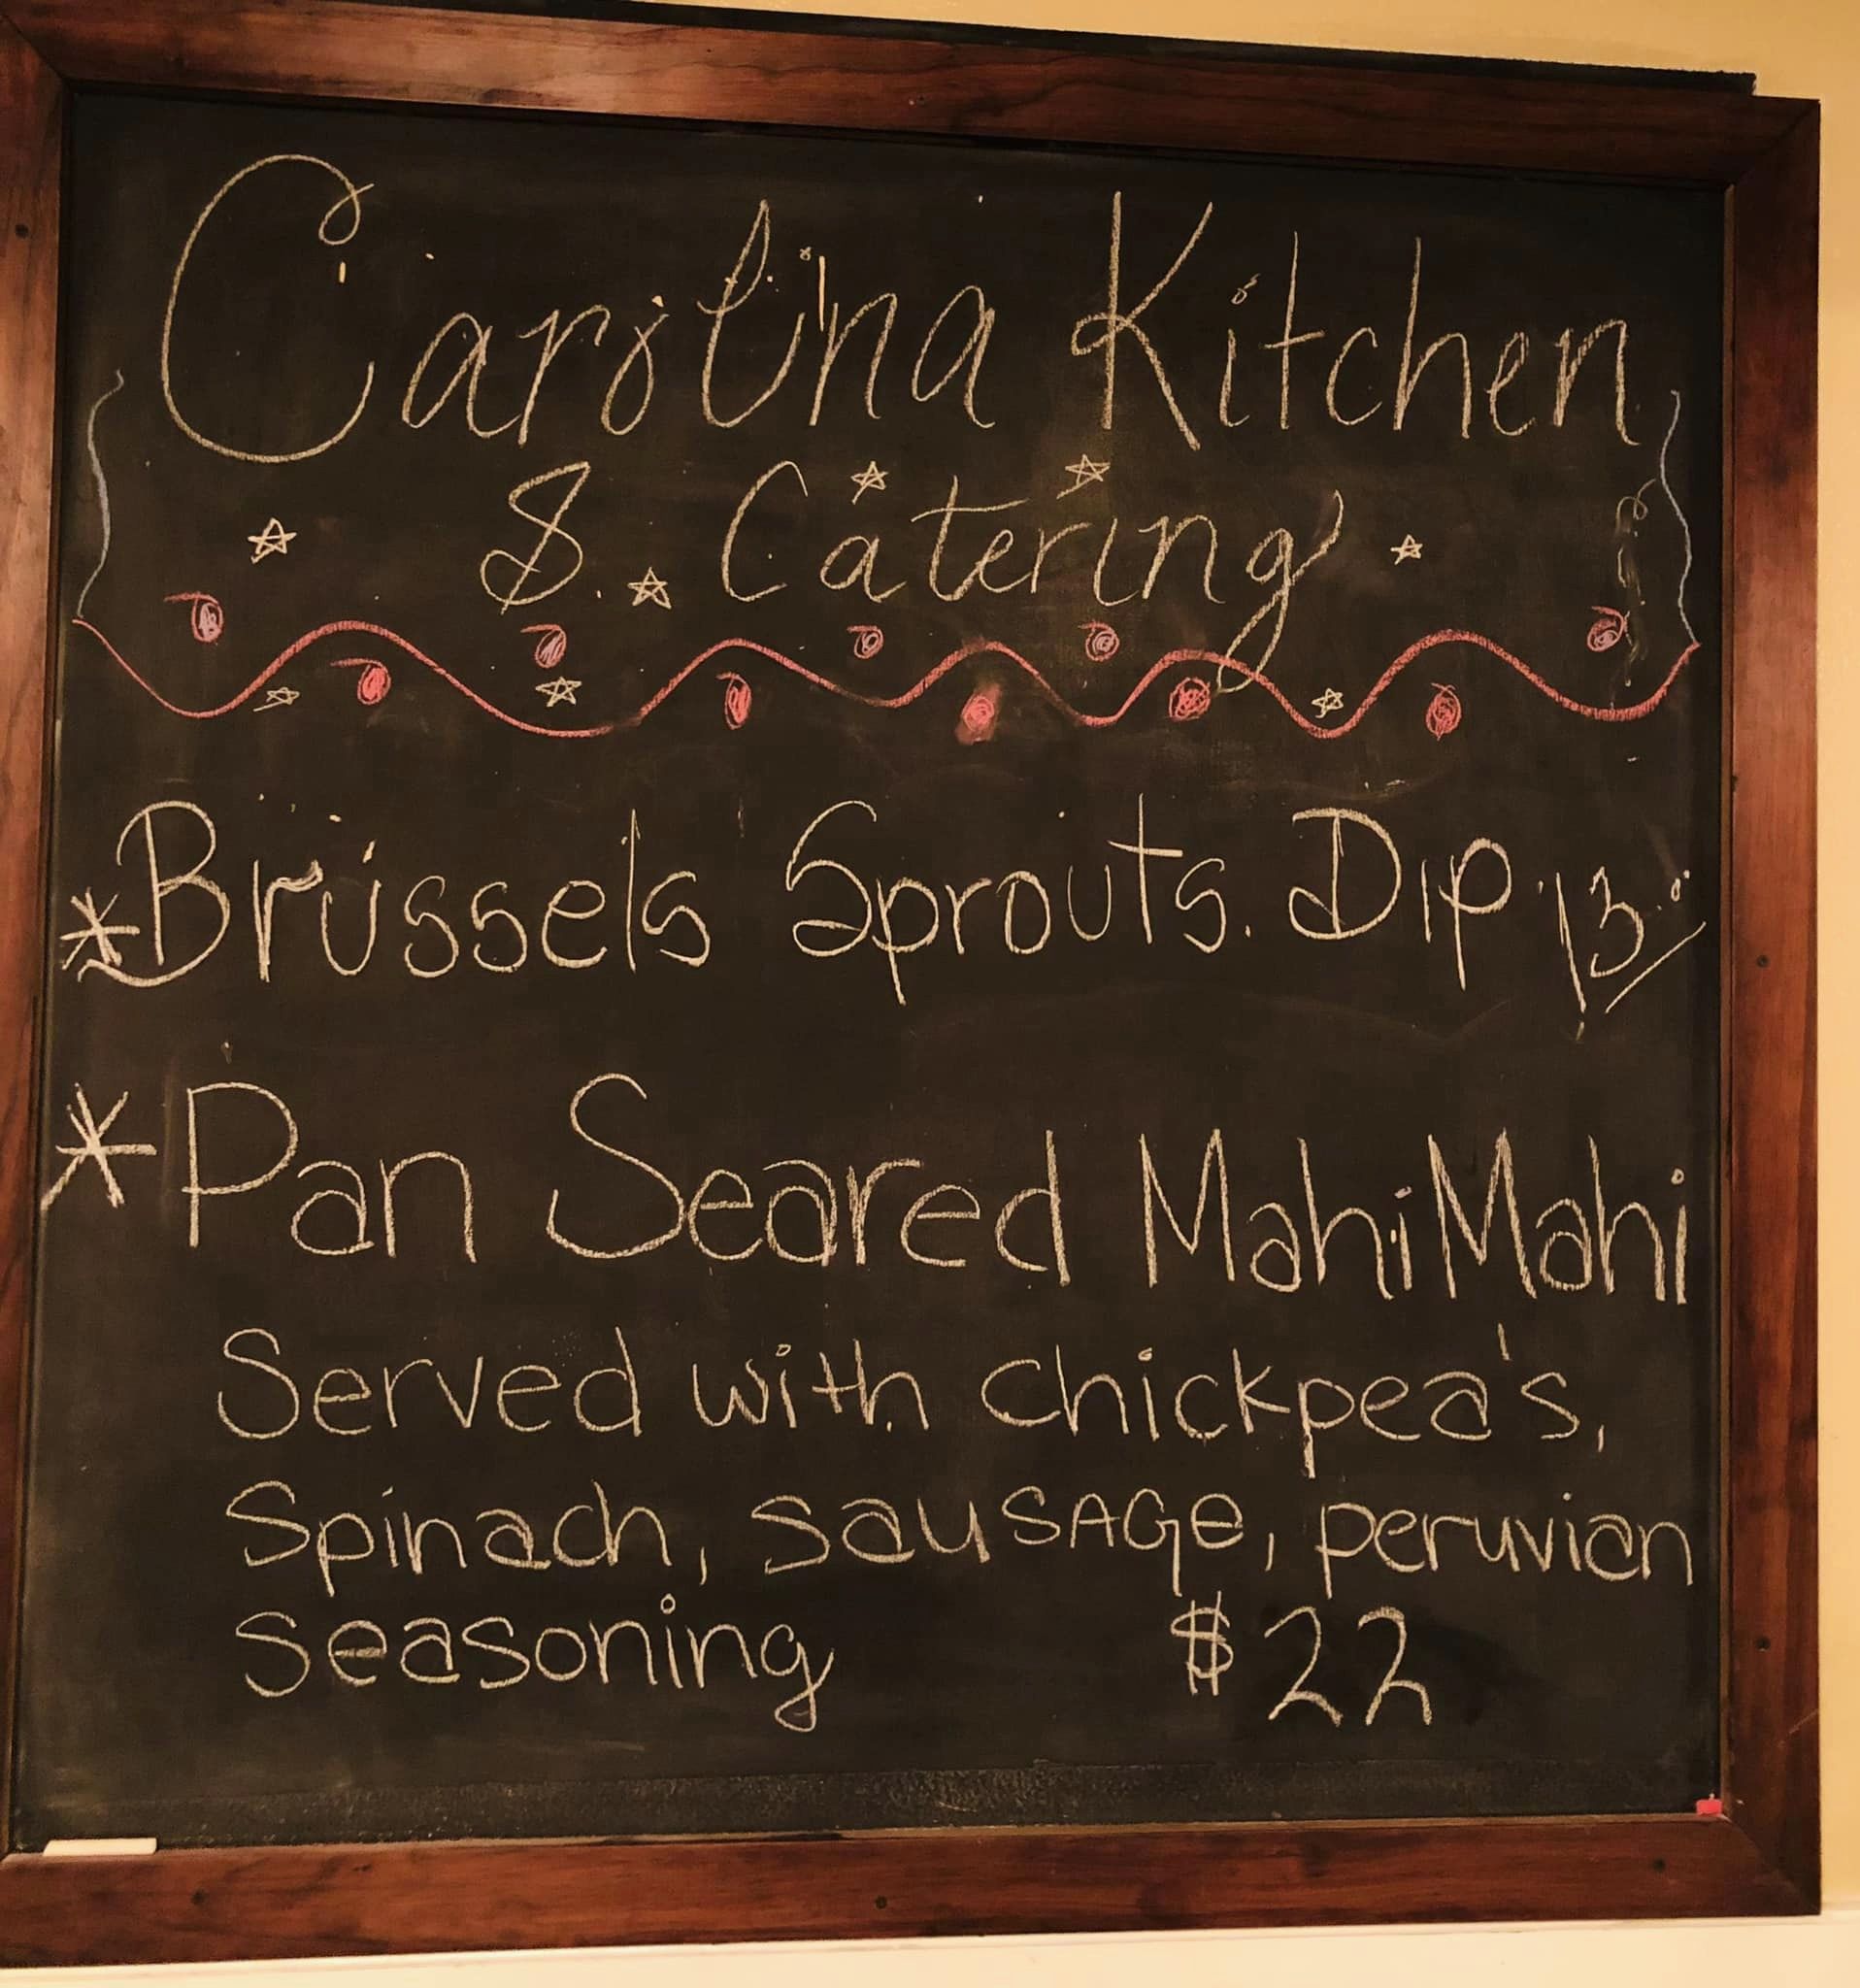 Carolina Kitchen
& Catering
*Brussels Sprouts Dip 13
*Pan Seared Mahi Mahi
Served with chickpea's,
Spinach, sausAGe, peruvian
seasoning $22